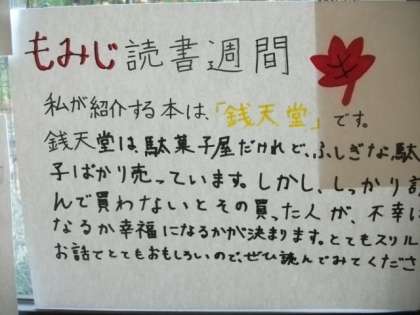 もみじ読書週間
私が紹介する本は、「銭天堂」です。
銭天堂は、駄菓子屋だけれど、ふしぎな駄
子ばかり売っています。しかし、しっかり読
んで買わないとその買った人が、不幸に
なるか幸福になるかが決まります。とてもスリル
お話でとてもおもしろいので、ぜひ読んでみてくださ